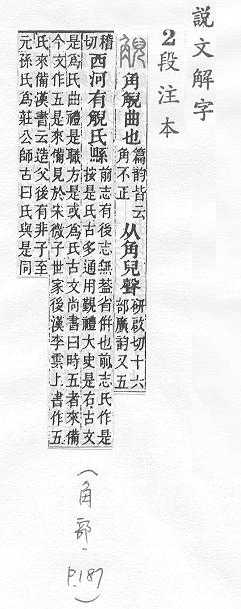 說文解字
2段注本
角觬曲也篇韵皆云角不正从角兒聲研啟切十六部廣韵又五
稽切西河有觬氏縣前志有後志無葢省併也前志氏作是按是氏古多通用覲禮大史是右古文
是爲氏曲禮是職方是或爲氏古文尚書曰時五者來備
今文作五是來備見於宋微子世家後漢李雲上書作五
氏來備漢書云造父後有非子至
元孫氏爲莊公師古曰氏與是同
(角部.P.187)